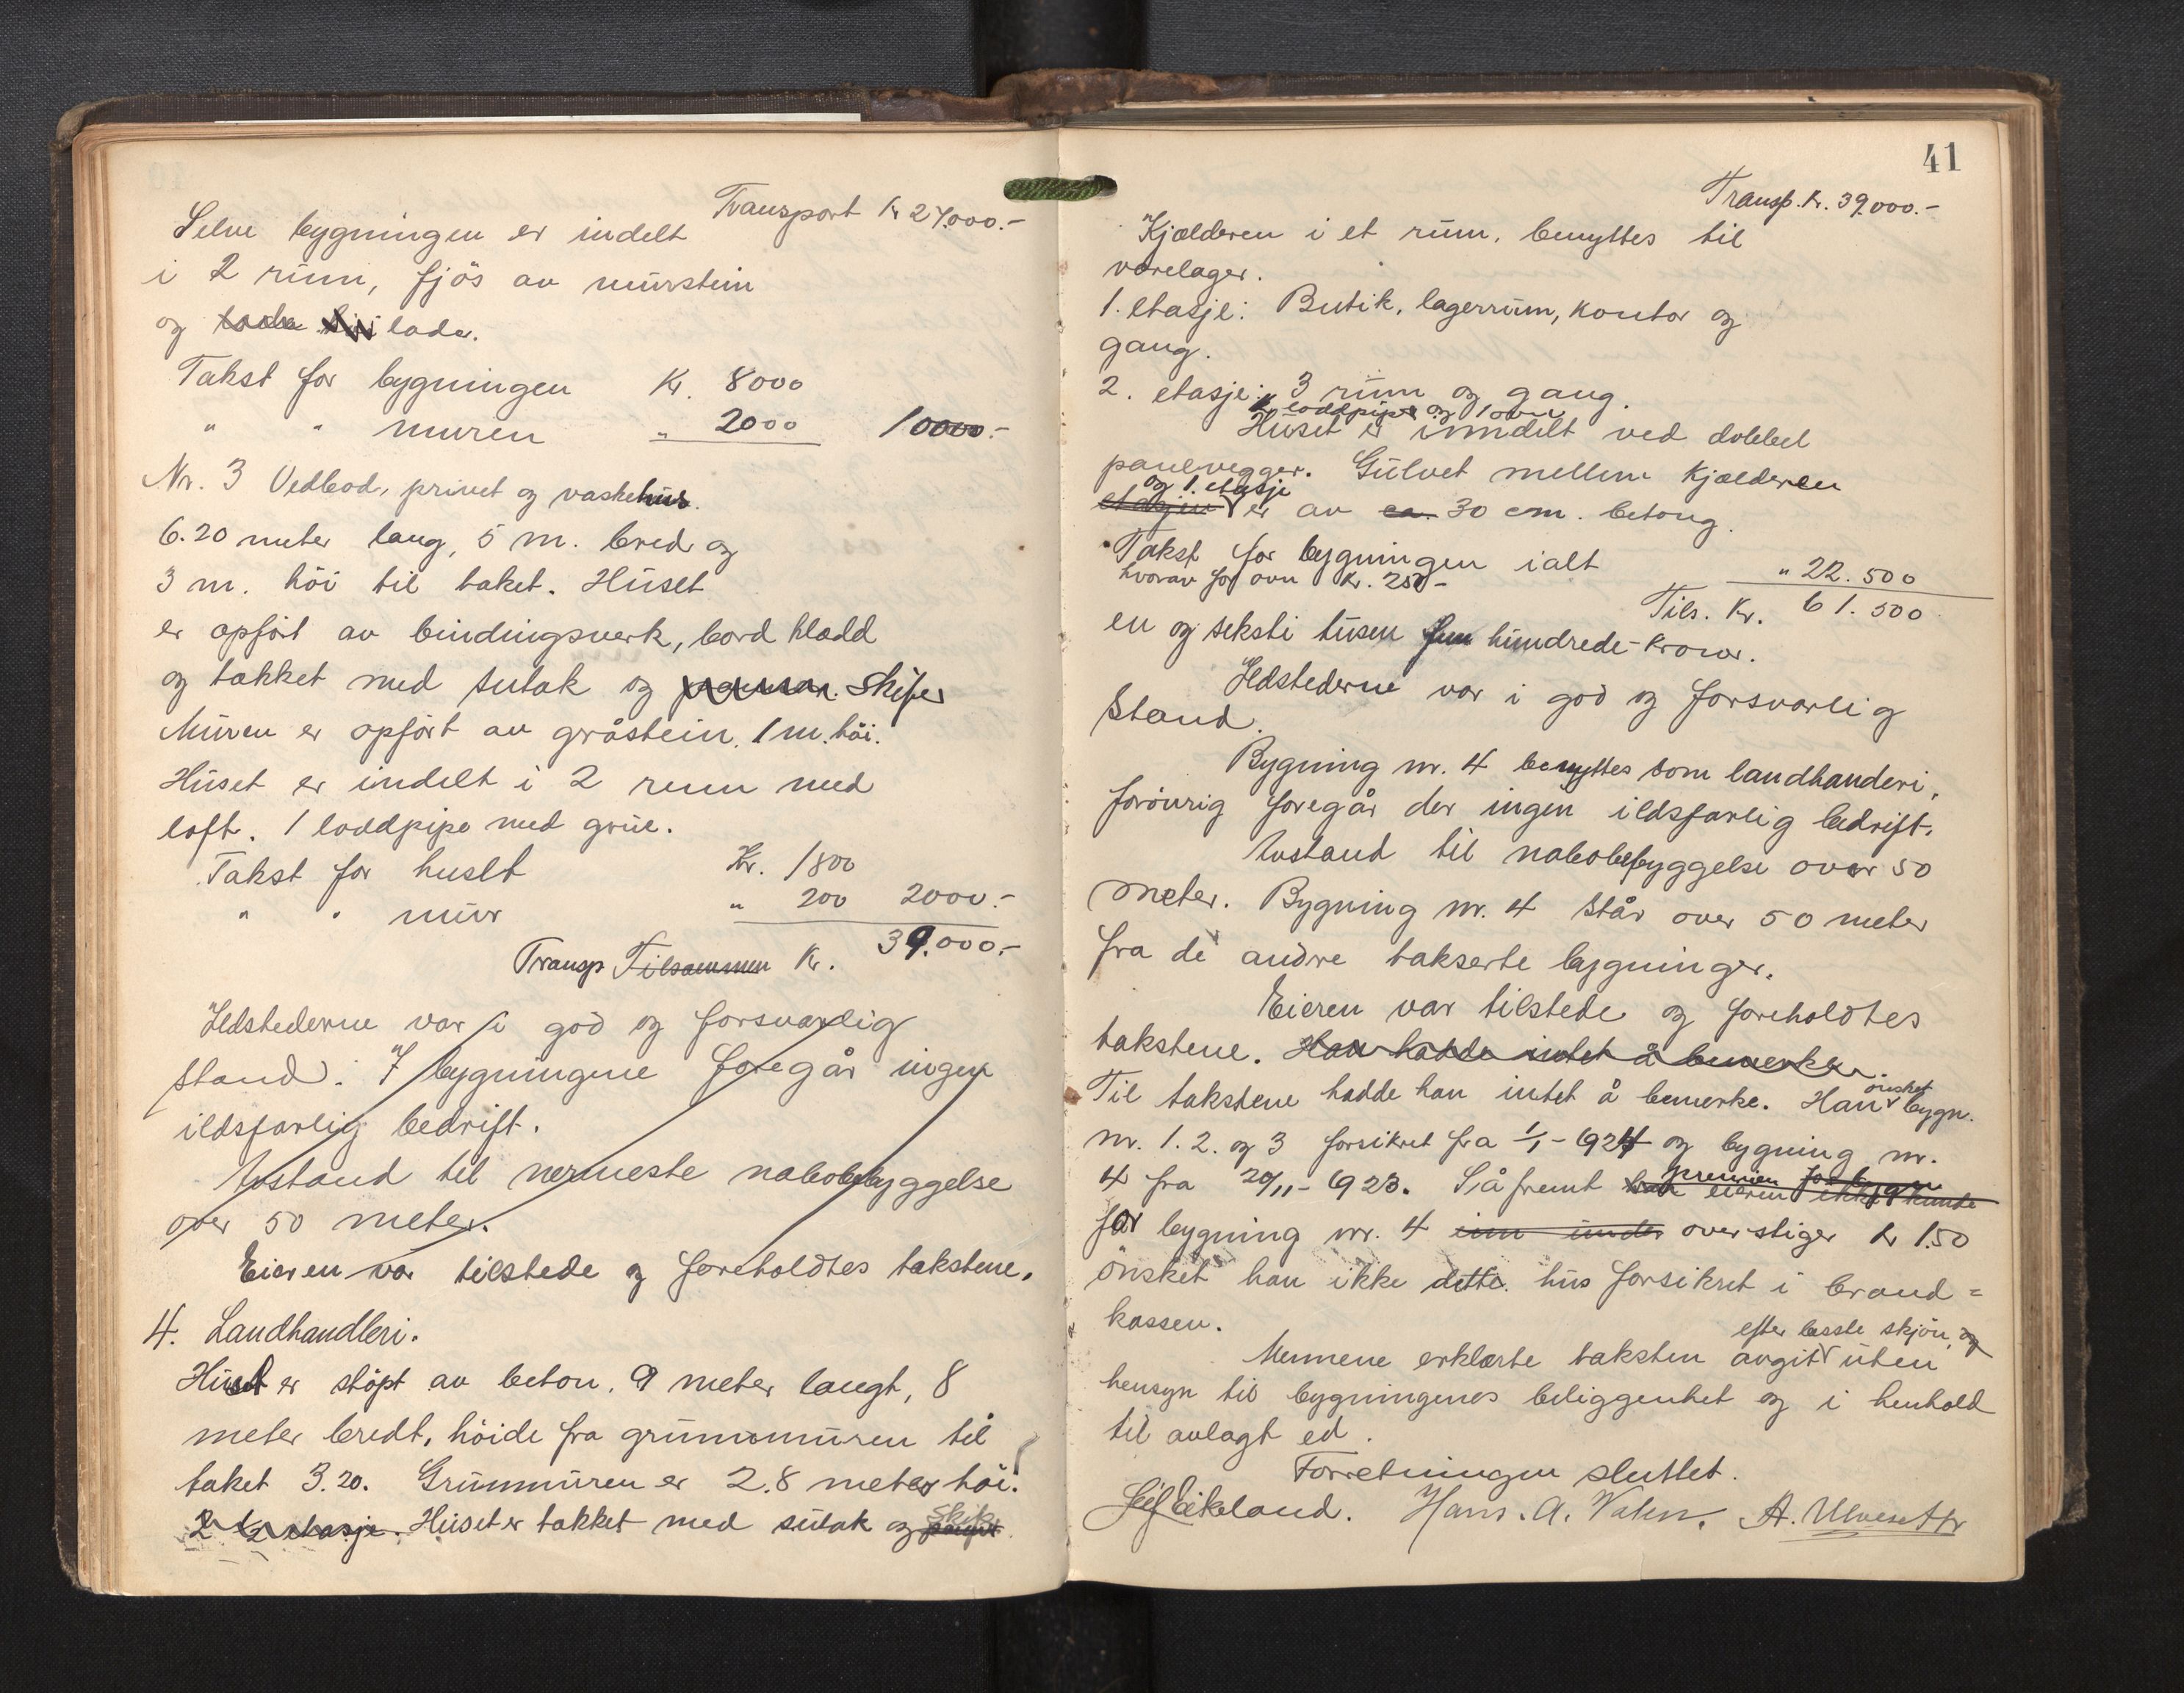 Transport Kr 27.000.-
Selve bygningen er indelt
i 2 rum, fjös av murstein
og lade.
Takst for bygningen Kr. 8000
" " muren " 2000 10000.-
Nr. 3 Vedbod, privet og vaskehus.
6.20 meter lang, 5 m. bred og
3 m. höi til taket. Huset
er opfört av bindingsverk, bord klædd
og takket med sutak og skifer
Muren er opfört av gråstein. 1 m. höi.
Huset er indelt i 2 rum med
loft. 1 loddpipe med grue.
Takst for huset Kr. 1800
" " mur " 200 2000.-
Transp Tilsammen Kr. 39.000.-
Ildstederne var i god og forsvarlig
stand. I bygningene foregår ingen
ildsfarlig bedrift.
Avstand til nermeste nabobebyggelse
over 50 meter.
Eieren var tilstede og foreholdtes takstene.
4. Landhandleri.
Huset er stöpt av beton. 9 meter langt, 8
meter bredt, höide fra grunnmuren til
taket 3.20. Grunmuren er 2.8 meter höi.
2 etasje. Huset er takket med sutak og skifer
41
Transp. Kr. 39.000.-
Kjælderen i et rum, benyttes til
varelager.
1. etasje: Butik, lagerrum, kontor og
gang.
2. etasje: 3 rum og gang.
1 loddpipe og 1 ovn
Huset er inndelt ved dobbel
panelvegger. Gulvet mellem Kjælderen
og 1. etasje
etasjen er av ca. 30 cm. betong.
Takst for bygningen ialt " 22.500
hvorav for ovn Kr. 250-
Tils. Kr. 61.500
en og seksti tusen fem hundrede - Kroner.
Ildstederne var i god og forsvarlig
stand.
Bygning nr. 4 benyttes som landhanderi,
forövrig foregår der ingen ildsfarlig bedrift.
Avstand til nabobebyggelse over 50
meter. Bygning nr. 4 står over 50 meter
fra de andre takserte bygninger.
Eieren var tilstede og foreholdtes
takstene. Han hadde intet å bemerke.
Til takstene hadde han intet å bemerke. Han önsket bygn.
nr. 1. 2. og 3 forsikret fra 1/1 - 1924 og bygning nr.
4 fra 20/11 - 1923. Såfremt premien for bygn
eieren ikke kunde
for bygning nr. 4 inn under overstiger kr 1.50
önsket han ikke dette hus forsikret i brand=
kassen.
efter beste skjön, og
Mennene erklærte taksten avgit uten
hensyn til bygningenes beliggenhet og i henhold
til avlagt ed.
Forretningen sluttet.
Leif Eikeland. Hans. A.